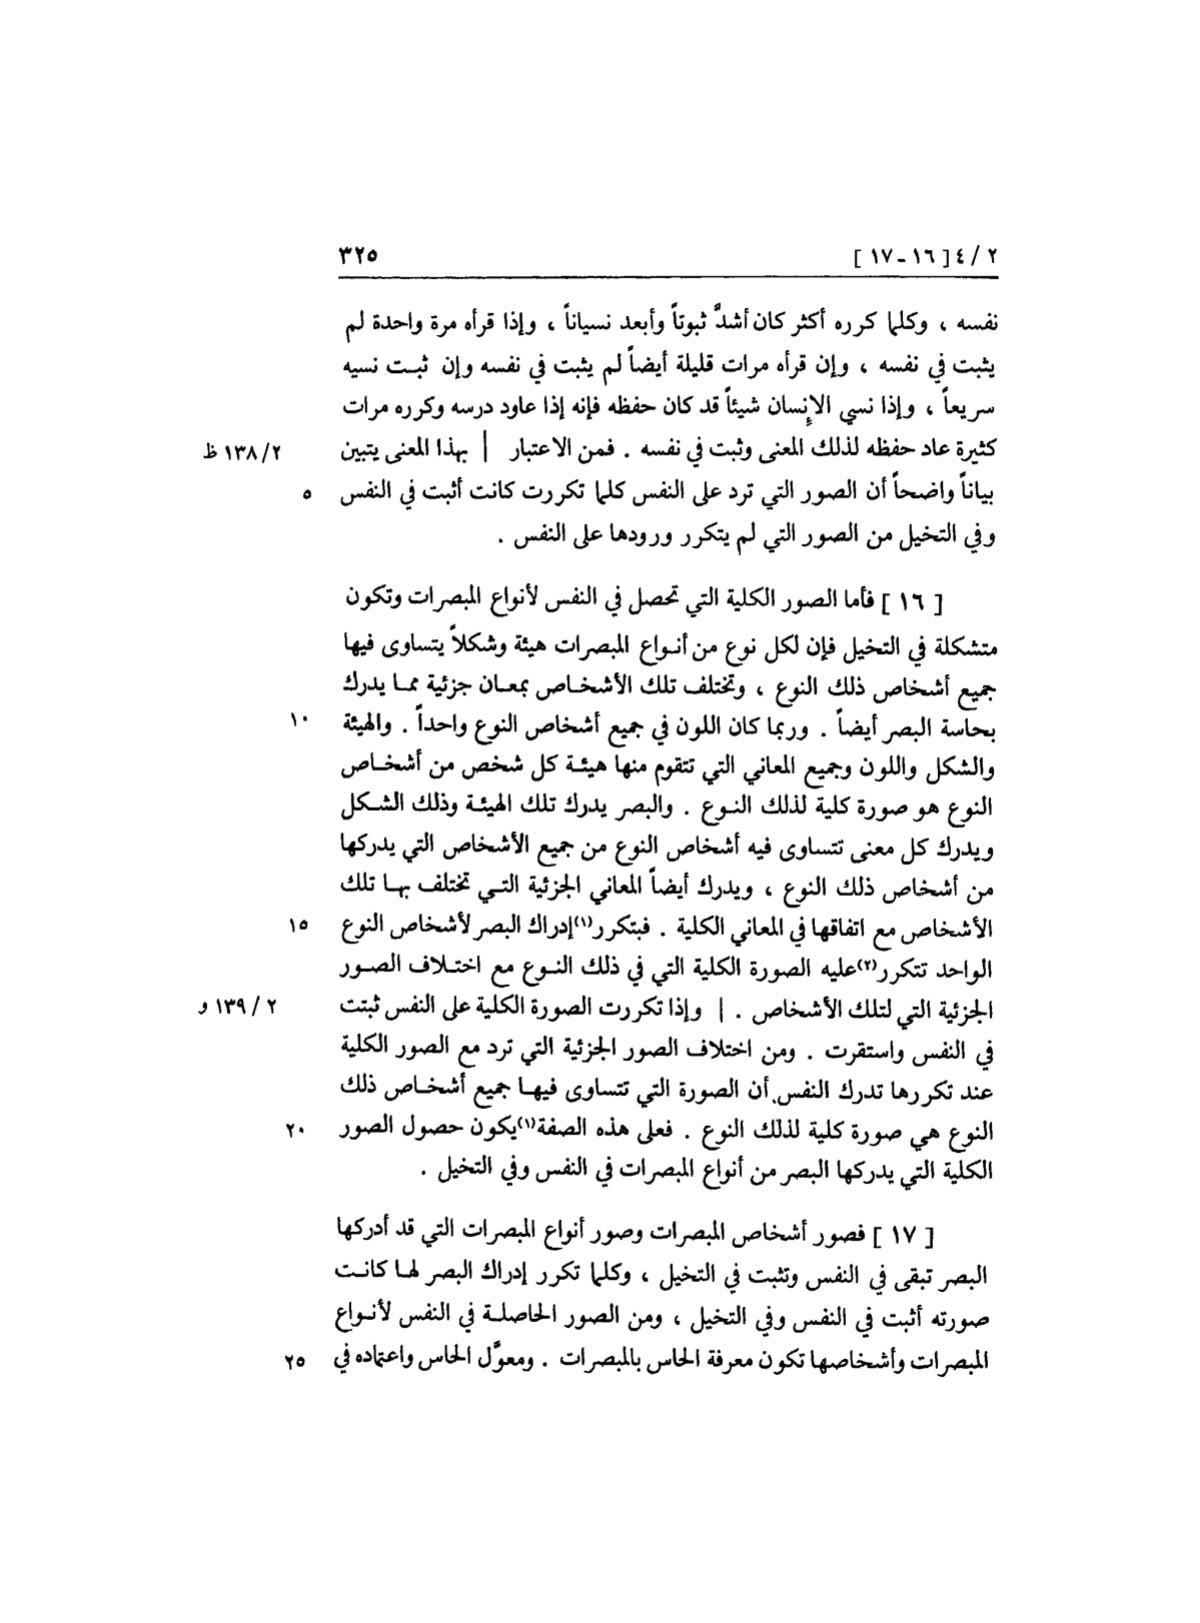 ٢ / ٤ [ ١٦ - ١٧ ] ٣٢٥
نفسه ، وكلما كرره أكثر كان أشدَّ ثبوتاً وأبعد نسياناً ، وإذا قرأه مرة واحدة لم
يثبت في نفسه ، وإن قرأه مرات قليلة أيضاً لم يثبت في نفسه وإن ثبت نسيه
سريعاً ، وإذا نسي الإنسان شيئاً قد كان حفظه فإنه إذا عاود درسه وكرره مرات
كثيرة عاد حفظه لذلك المعنى وثبت في نفسه . فمن الاعتبار | بهذا المعنى يتبين ٢/ ١٣٨ ظ
بياناً واضحاً أن الصور التي ترد على النفس كلما تكررت كانت أثبت في النفس ٥
وفي التخيل من الصور التي لم يتكرر ورودها على النفس .
[ ١٦ ] فأما الصور الكلية التي تحصل في النفس لأنواع المبصرات وتكون
متشكلة في التخيل فإن لكل نوع من أنواع المبصرات هيئة وشكلاً يتساوى فيها
جميع أشخاص ذلك النوع ، وتختلف تلك الأشخاص بمعان جزئية مما يدرك
بحاسة البصر أيضاً . وربما كان اللون في جميع أشخاص النوع واحداً . والهيئة ١٠
والشكل واللون وجميع المعاني التي تتقوم منها هيئة كل شخص من أشخاص
النوع هو صورة كلية لذلك النوع . والبصر يدرك تلك الهيئة وذلك الشكل
ويدرك كل معنى تتساوى فيه أشخاص النوع من جميع الأشخاص التي يدركها
من أشخاص ذلك النوع ، ويدرك أيضاً المعاني الجزئية التي تختلف بها تلك
الأشخاص مع اتفاقها في المعاني الكلية . فبتكرر(١) إدراك البصر لأشخاص النوع ١٥
الواحد تتكرر(٢) عليه الصورة الكلية التي في ذلك النوع مع اختلاف الصور
الجزئية التي لتلك الأشخاص . | وإذا تكررت الصورة الكلية على النفس ثبتت ٢ / ١٣٩ و
في النفس واستقرت . ومن اختلاف الصور الجزئية التي ترد مع الصور الكلية
عند تكررها تدرك النفس أن الصورة التي تتساوى فيها جميع أشخاص ذلك
النوع هي صورة كلية لذلك النوع . فعلى هذه الصفة(١) يكون حصول الصور ٢٠
الكلية التي يدركها البصر من أنواع المبصرات في النفس وفي التخيل .
[ ١٧ ] فصور أشخاص المبصرات وصور أنواع المبصرات التي قد أدركها
البصر تبقى في النفس وتثبت في التخيل ، وكلما تكرر إدراك البصر لها كانت
صورته أثبت في النفس وفي التخيل ، ومن الصور الحاصلة في النفس لأنواع
المبصرات وأشخاصها تكون معرفة الحاس بالمبصرات . ومعوَّل الحاس واعتماده في ٢٥